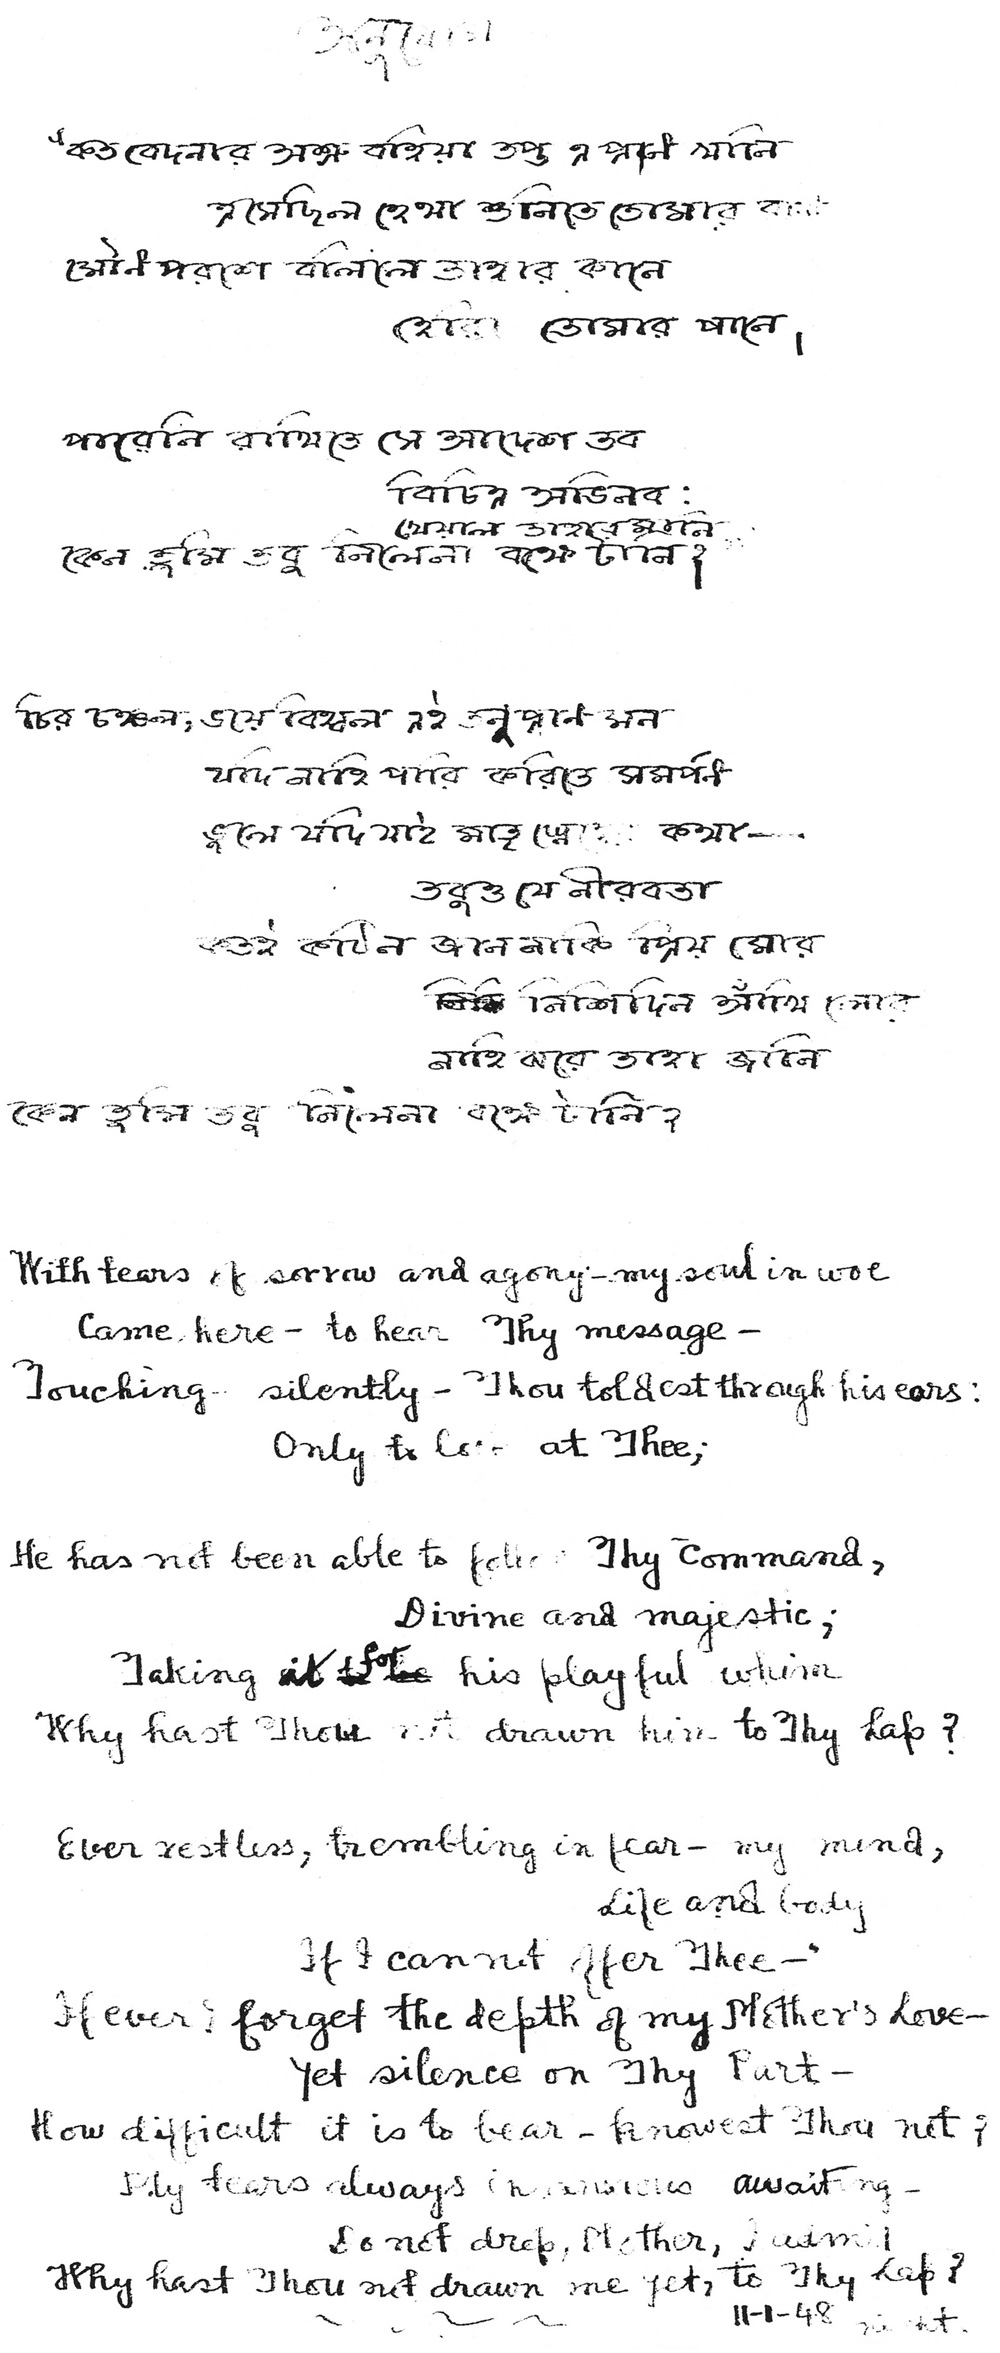 অনুযোগ
"কত বেদনার অশ্রু বহিয়া তপ্ত এ প্রাণ খানি
এসেছিল হেথা শুনিতে তোমার
মৌন পরশে বলিলে তাহার কানে
হেরি তোমার পানে।
পারেনি রাখিতে সে আদেশ তব
বিচিত্র অভিনব:
খেয়াল তাহারে মানি
কেন তুমি তবু নিলেনা বক্ষে টানি?
চির চঞ্চল, ভয়ে বিহ্বল এই তনু প্রাণ মন
যদি নাহি পারি করিতে সমর্পণ
ভুলে যদি যাই মাতৃ কথা—
তবুও যে নীরবতা
কতই কঠিন জান নাকি প্রিয় মোর
নিশিদিন আঁখি মোর
নাহি ঝরে তাহা জানি
কেন তুমি তবু নিলেনা বক্ষে টানি?
With tears of sorrow and agony - my soul in woe
Came here - to hear Thy message -
Touching silently - Thou toldest through his ears:
Only to at Thee;
He has not been able to follow Thy Command,
Divine and majestic;
Taking for his playful whim
Why hast Thou not drawn him to Thy Lap?
Ever restless, trembling in fear - my mind,
Life and body
If I cannot offer Thee -
If ever I forget the depth of my Mother's Love -
Yet silence on Thy Part -
How difficult it is to bear - knowest Thou not?
My tears always in anxious awaiting -
Do not drop, Mother, I admit
Why hast Thou not drawn me yet, to Thy Lap?
11-1-48 night.